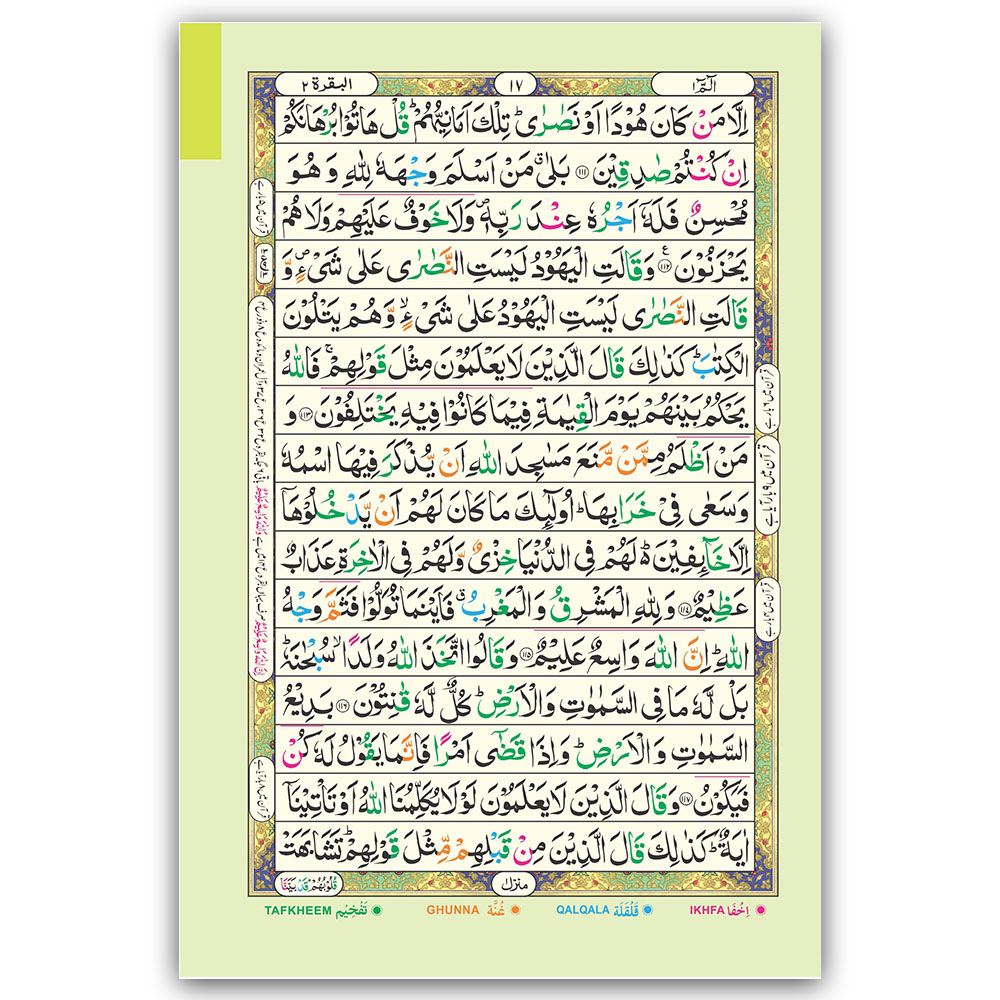 الٓمّٓ ١
١٧
البقرة ٢
اِلَّا مَنْ كَانَ هُوْدًا اَوْ نَصٰرٰى ؕ تِلْكَ اَمَانِیُّهُمْ ؕ قُلْ هَاتُوْا بُرْهَانَكُمْ
اِنْ كُنْتُمْ صٰدِقِیْنَ ﴿۱۱۱﴾ بَلٰى ۗ مَنْ اَسْلَمَ وَجْهَهٗ لِلّٰهِ وَ هُوَ
مُحْسِنٌ فَلَهٗۤ اَجْرُهٗ عِنْدَ رَبِّهٖ ۪ وَلَا خَوْفٌ عَلَیْهِمْ وَلَا هُمْ
یَحْزَنُوْنَ ﴿۱۱۲﴾ وَقَالَتِ الْیَهُوْدُ لَیْسَتِ النَّصٰرٰى عَلٰى شَیْءٍ ۪ وَّ
قَالَتِ النَّصٰرٰى لَیْسَتِ الْیَهُوْدُ عَلٰى شَیْءٍ ۙ وَّهُمْ یَتْلُوْنَ
الْكِتٰبَ ؕ كَذٰلِكَ قَالَ الَّذِیْنَ لَا یَعْلَمُوْنَ مِثْلَ قَوْلِهِمْ ۚ فَاللّٰهُ
یَحْكُمُ بَیْنَهُمْ یَوْمَ الْقِیٰمَةِ فِیْمَا كَانُوْا فِیْهِ یَخْتَلِفُوْنَ ﴿۱۱۳﴾ وَ
مَنْ اَظْلَمُ مِمَّنْ مَّنَعَ مَسٰجِدَ اللّٰهِ اَنْ یُّذْكَرَ فِیْهَا اسْمُهٗ
وَسَعٰى فِیْ خَرَابِهَا ؕ اُولٰٓئِكَ مَا كَانَ لَهُمْ اَنْ یَّدْخُلُوْهَاۤ
اِلَّا خَآئِفِیْنَ ؕ۬ لَهُمْ فِی الدُّنْیَا خِزْیٌ وَّلَهُمْ فِی الْاٰخِرَةِ عَذَابٌ
عَظِیْمٌ ﴿۱۱۴﴾ وَلِلّٰهِ الْمَشْرِقُ وَالْمَغْرِبُ ۗ فَاَیْنَمَا تُوَلُّوْا فَثَمَّ وَجْهُ
اللّٰهِ ؕ اِنَّ اللّٰهَ وَاسِعٌ عَلِیْمٌ ﴿۱۱۵﴾ وَقَالُوا اتَّخَذَ اللّٰهُ وَلَدًا ۙ سُبْحٰنَهٗ ؕ
بَلْ لَّهٗ مَا فِی السَّمٰوٰتِ وَالْاَرْضِ ؕ كُلٌّ لَّهٗ قٰنِتُوْنَ ﴿۱۱۶﴾ بَدِیْعُ
السَّمٰوٰتِ وَالْاَرْضِ ؕ وَاِذَا قَضٰۤى اَمْرًا فَاِنَّمَا یَقُوْلُ لَهٗ كُنْ
فَیَكُوْنُ ﴿۱۱۷﴾ وَقَالَ الَّذِیْنَ لَا یَعْلَمُوْنَ لَوْلَا یُكَلِّمُنَا اللّٰهُ اَوْ تَاْتِیْنَاۤ
اٰیَةٌ ؕ كَذٰلِكَ قَالَ الَّذِیْنَ مِنْ قَبْلِهِمْ مِّثْلَ قَوْلِهِمْ ؕ تَشَابَهَتْ
منزل ١
قُلُوْبُهُمْ ؕ قَدْ بَیَّنَّا
IKHFA اِخْفَا QALQALA قَلْقَلَة GHUNNA غُنَّة TAFKHEEM تَفْخِیْم